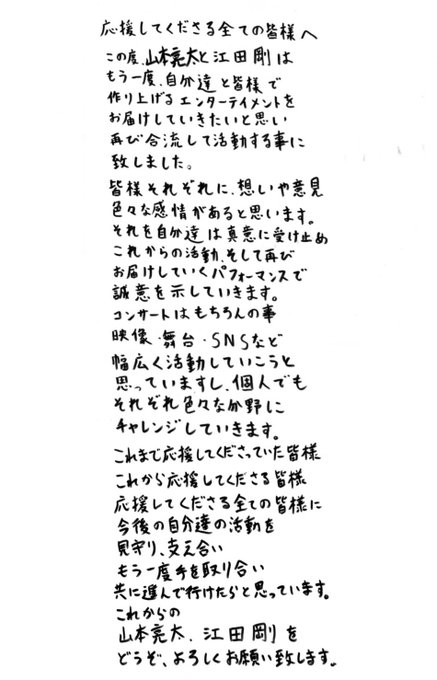 応援してくださる全ての皆様へ
この度、山本亮太と江田剛は
もう一度、自分達と皆様で
作り上げるエンターテイメントを
お届けしていきたいと思い
再び合流して活動する事に
致しました。
皆様それぞれに、想いや意見
色々な感情があると思います。
それを自分達は真意に受け止め
これからの活動、そして再び
お届けしていくパフォーマンスで
誠意を示していきます。
コンサートはもちろんの事
映像・舞台・SNSなど
幅広く活動していこうと
思っていますし、個人でも
それぞれ色々な分野に
チャレンジしていきます。
これまで応援してくださっていた皆様
これから応援してくださる皆様
応援してくださる全ての皆様に
今後の自分達の活動を
見守り、支え合い
もう一度手を取り合い
共に進んで行けたらと思っています。
これからの
山本亮太、江田剛を
どうぞ、よろしくお願い致します。